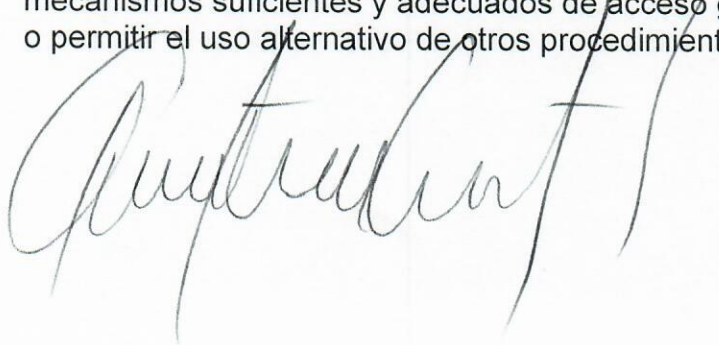 mecanismos suficientes y adecuados de acceso
o permitir el uso alternativo de otros procedimient